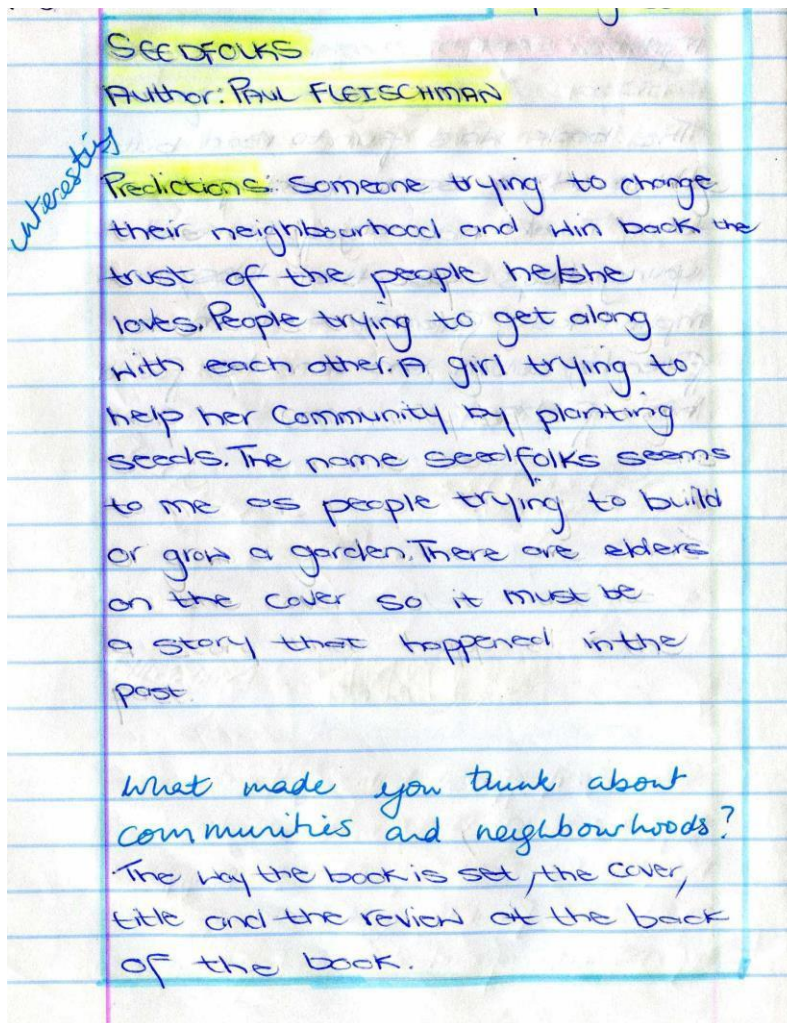 SEEDFOLKS
Author: PAUL FLEISCHMAN
interesting
Predictions: Someone trying to change
their neighbourhood and win back the
trust of the people he/she
loves. People trying to get along
with each other. A girl trying to
help her Community by planting
seeds. The name seedfolks seems
to me as people trying to build
or grow a garden. There are elders
on the cover so it must be
a story that happened in the
past.
What made you think about
communities and neighbourhoods?
The way the book is set, the cover,
title and the review at the back
of the book.